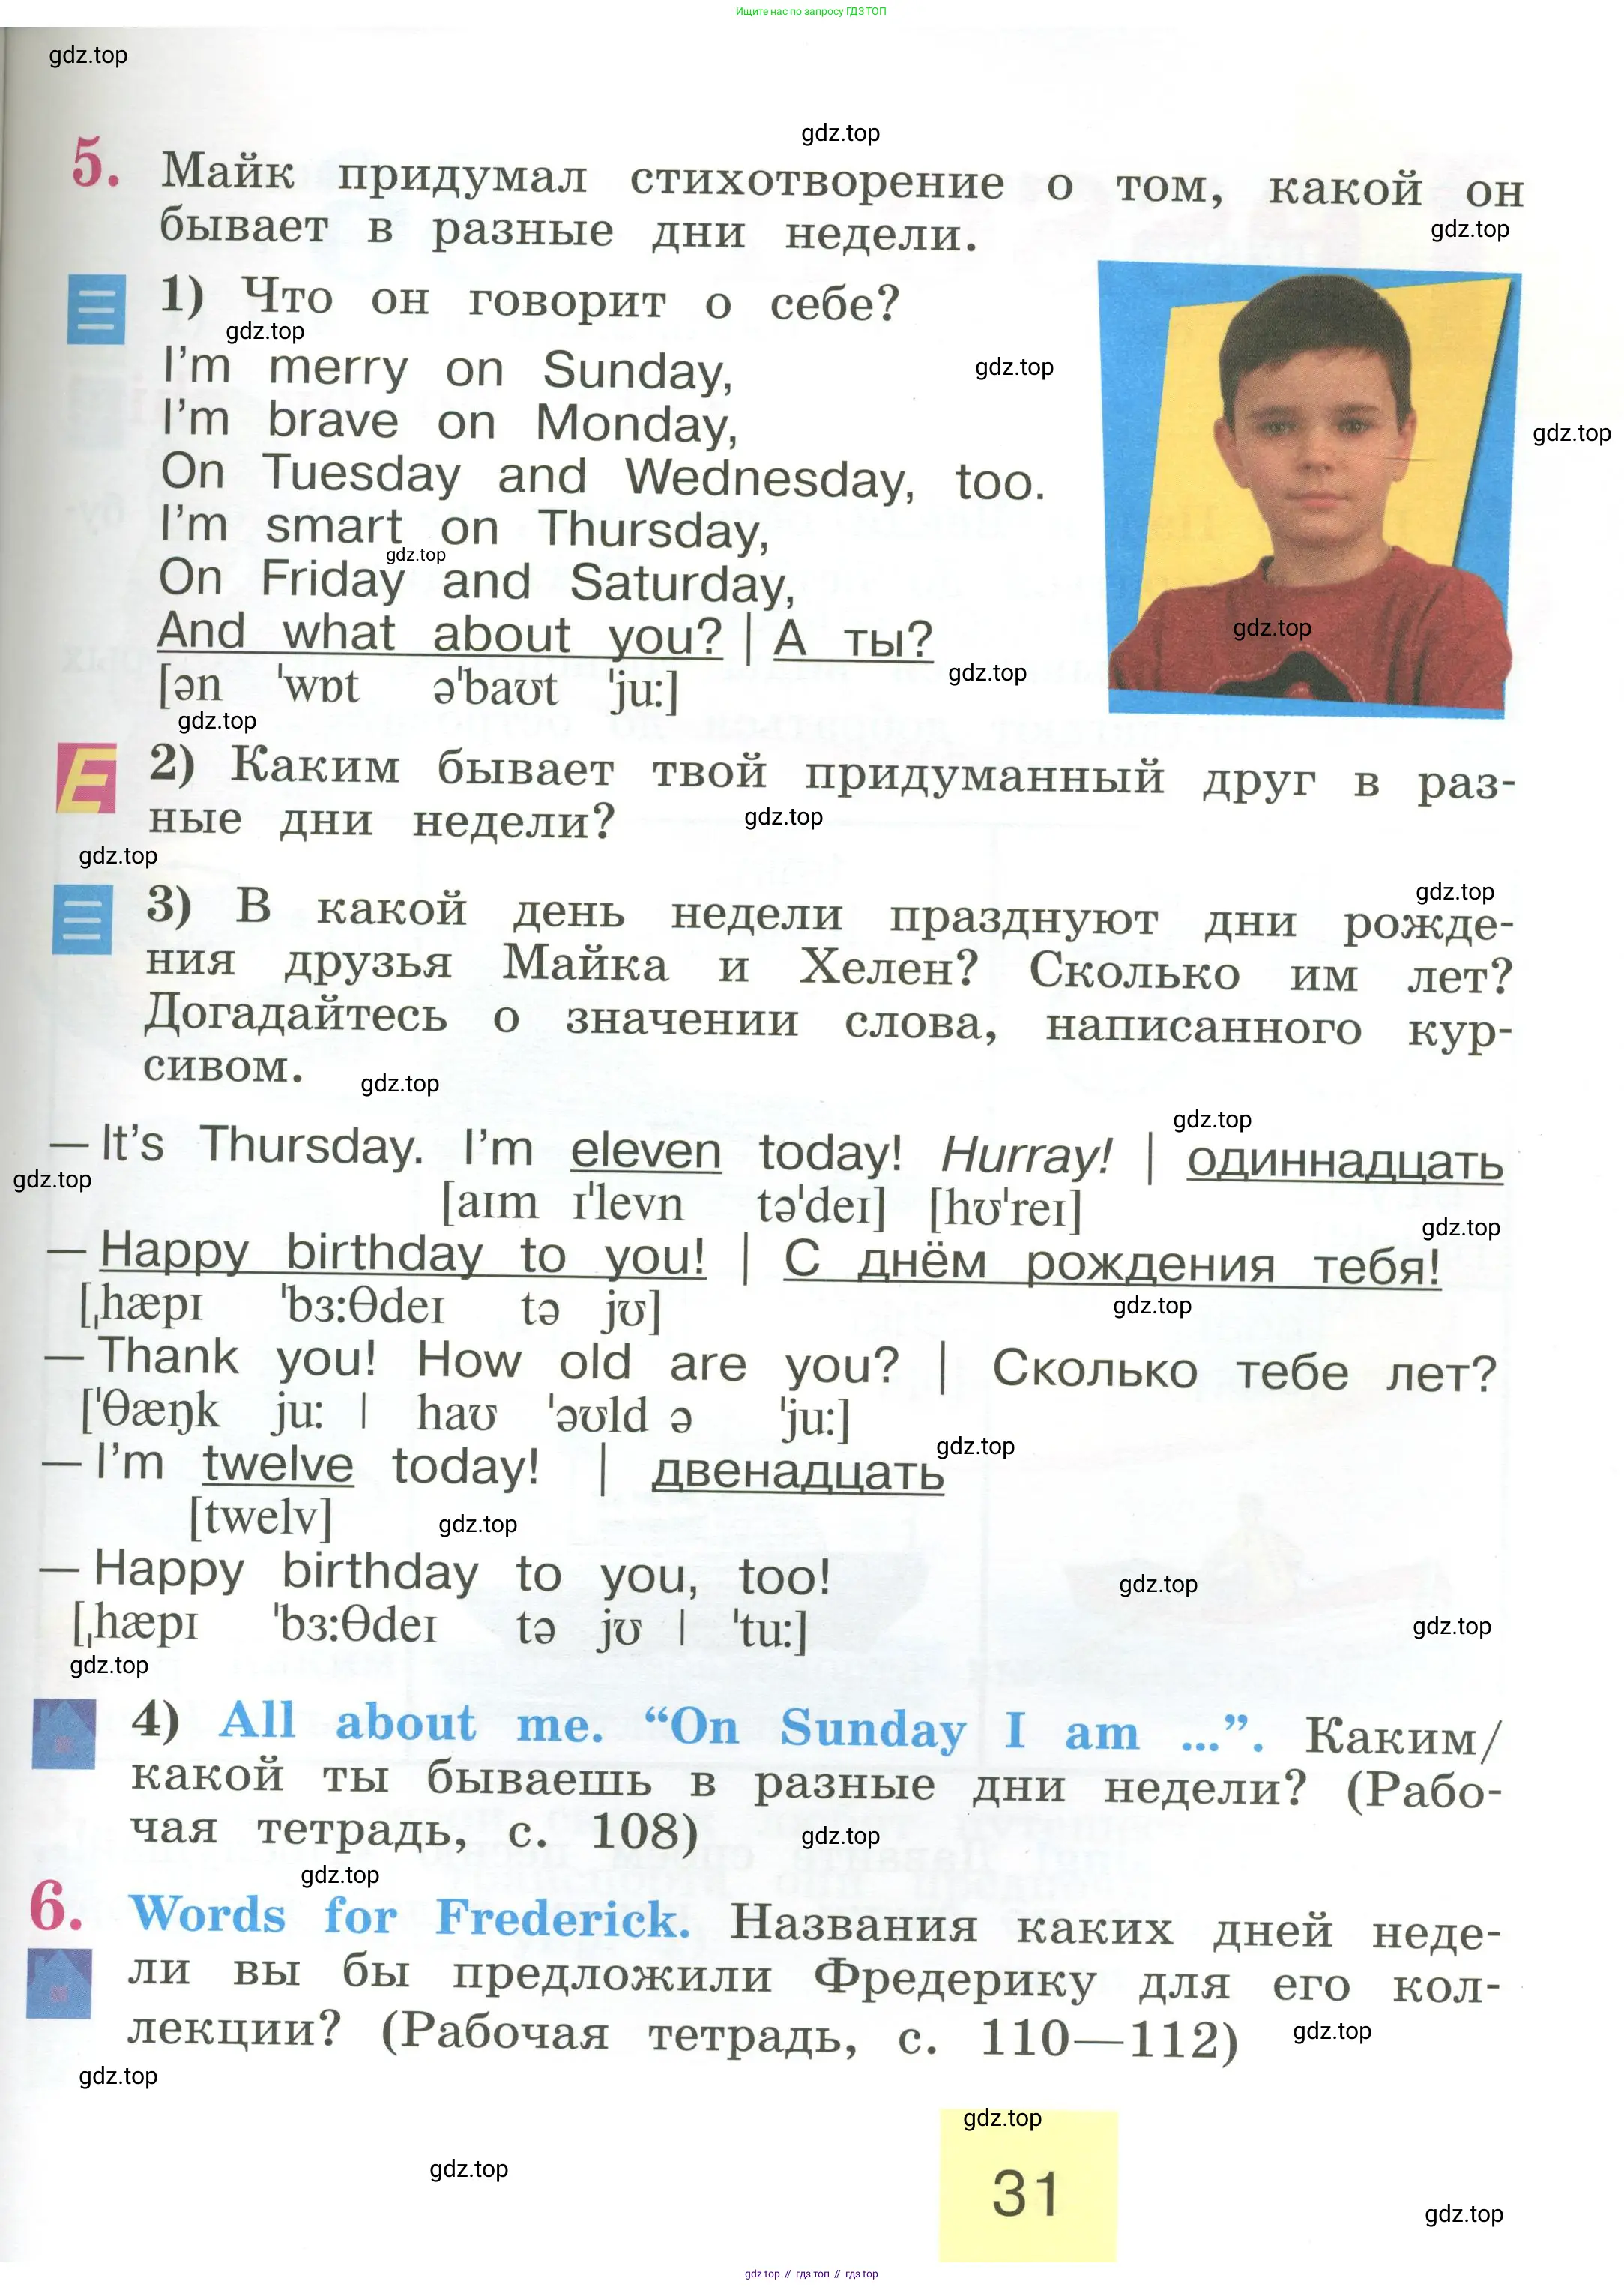 Ищите нас по запросу ГДЗ ТОП
gdz.top
gdz.top
5. Майк придумал стихотворение о том, какой он
бывает в разные дни недели.
gdz.top
1) Что он говорит о себе?
gdz.top
I'm merry on Sunday,
gdz.top
I'm brave on Monday,
gdz.top
On Tuesday and Wednesday, too.
I'm smart on Thursday,
gdz.top
On Friday and Saturday,
And what about you? | А ты?
gdz.top
[ən 'wɒt ə'baʊt 'ju:]
gdz.top
gdz.top
E 2) Каким бывает твой придуманный друг в раз-
ные дни недели?
gdz.top
gdz.top
gdz.top
3) В какой день недели празднуют дни рожде-
ния друзья Майка и Хелен? Сколько им лет?
Догадайтесь о значении слова, написанного кур-
сивом.
gdz.top
gdz.top
— It's Thursday. I'm eleven today! Hurray! | одиннадцать
gdz.top
[aɪm ɪ'levn tə'deɪ] [hʊ'reɪ]
gdz.top
— Happy birthday to you! | С днём рождения тебя!
[ˌhæpɪ 'bɜ:θdeɪ tə jʊ]
gdz.top
— Thank you! How old are you? | Сколько тебе лет?
['θæŋk ju: | haʊ 'əʊld ə 'ju:]
gdz.top
— I'm twelve today! | двенадцать
[twelv]
gdz.top
— Happy birthday to you, too!
gdz.top
[ˌhæpɪ 'bɜ:θdeɪ tə jʊ | 'tu:]
gdz.top
gdz.top
4) All about me. “On Sunday I am ...”. Каким/
какой ты бываешь в разные дни недели? (Рабо-
чая тетрадь, с. 108)
gdz.top
gdz.top
6. Words for Frederick. Названия каких дней неде-
ли вы бы предложили Фредерику для его кол-
лекции? (Рабочая тетрадь, с. 110—112)
gdz.top
gdz.top
gdz.top
gdz.top
31
gdz.top
gdz top // гдз топ // гдз top